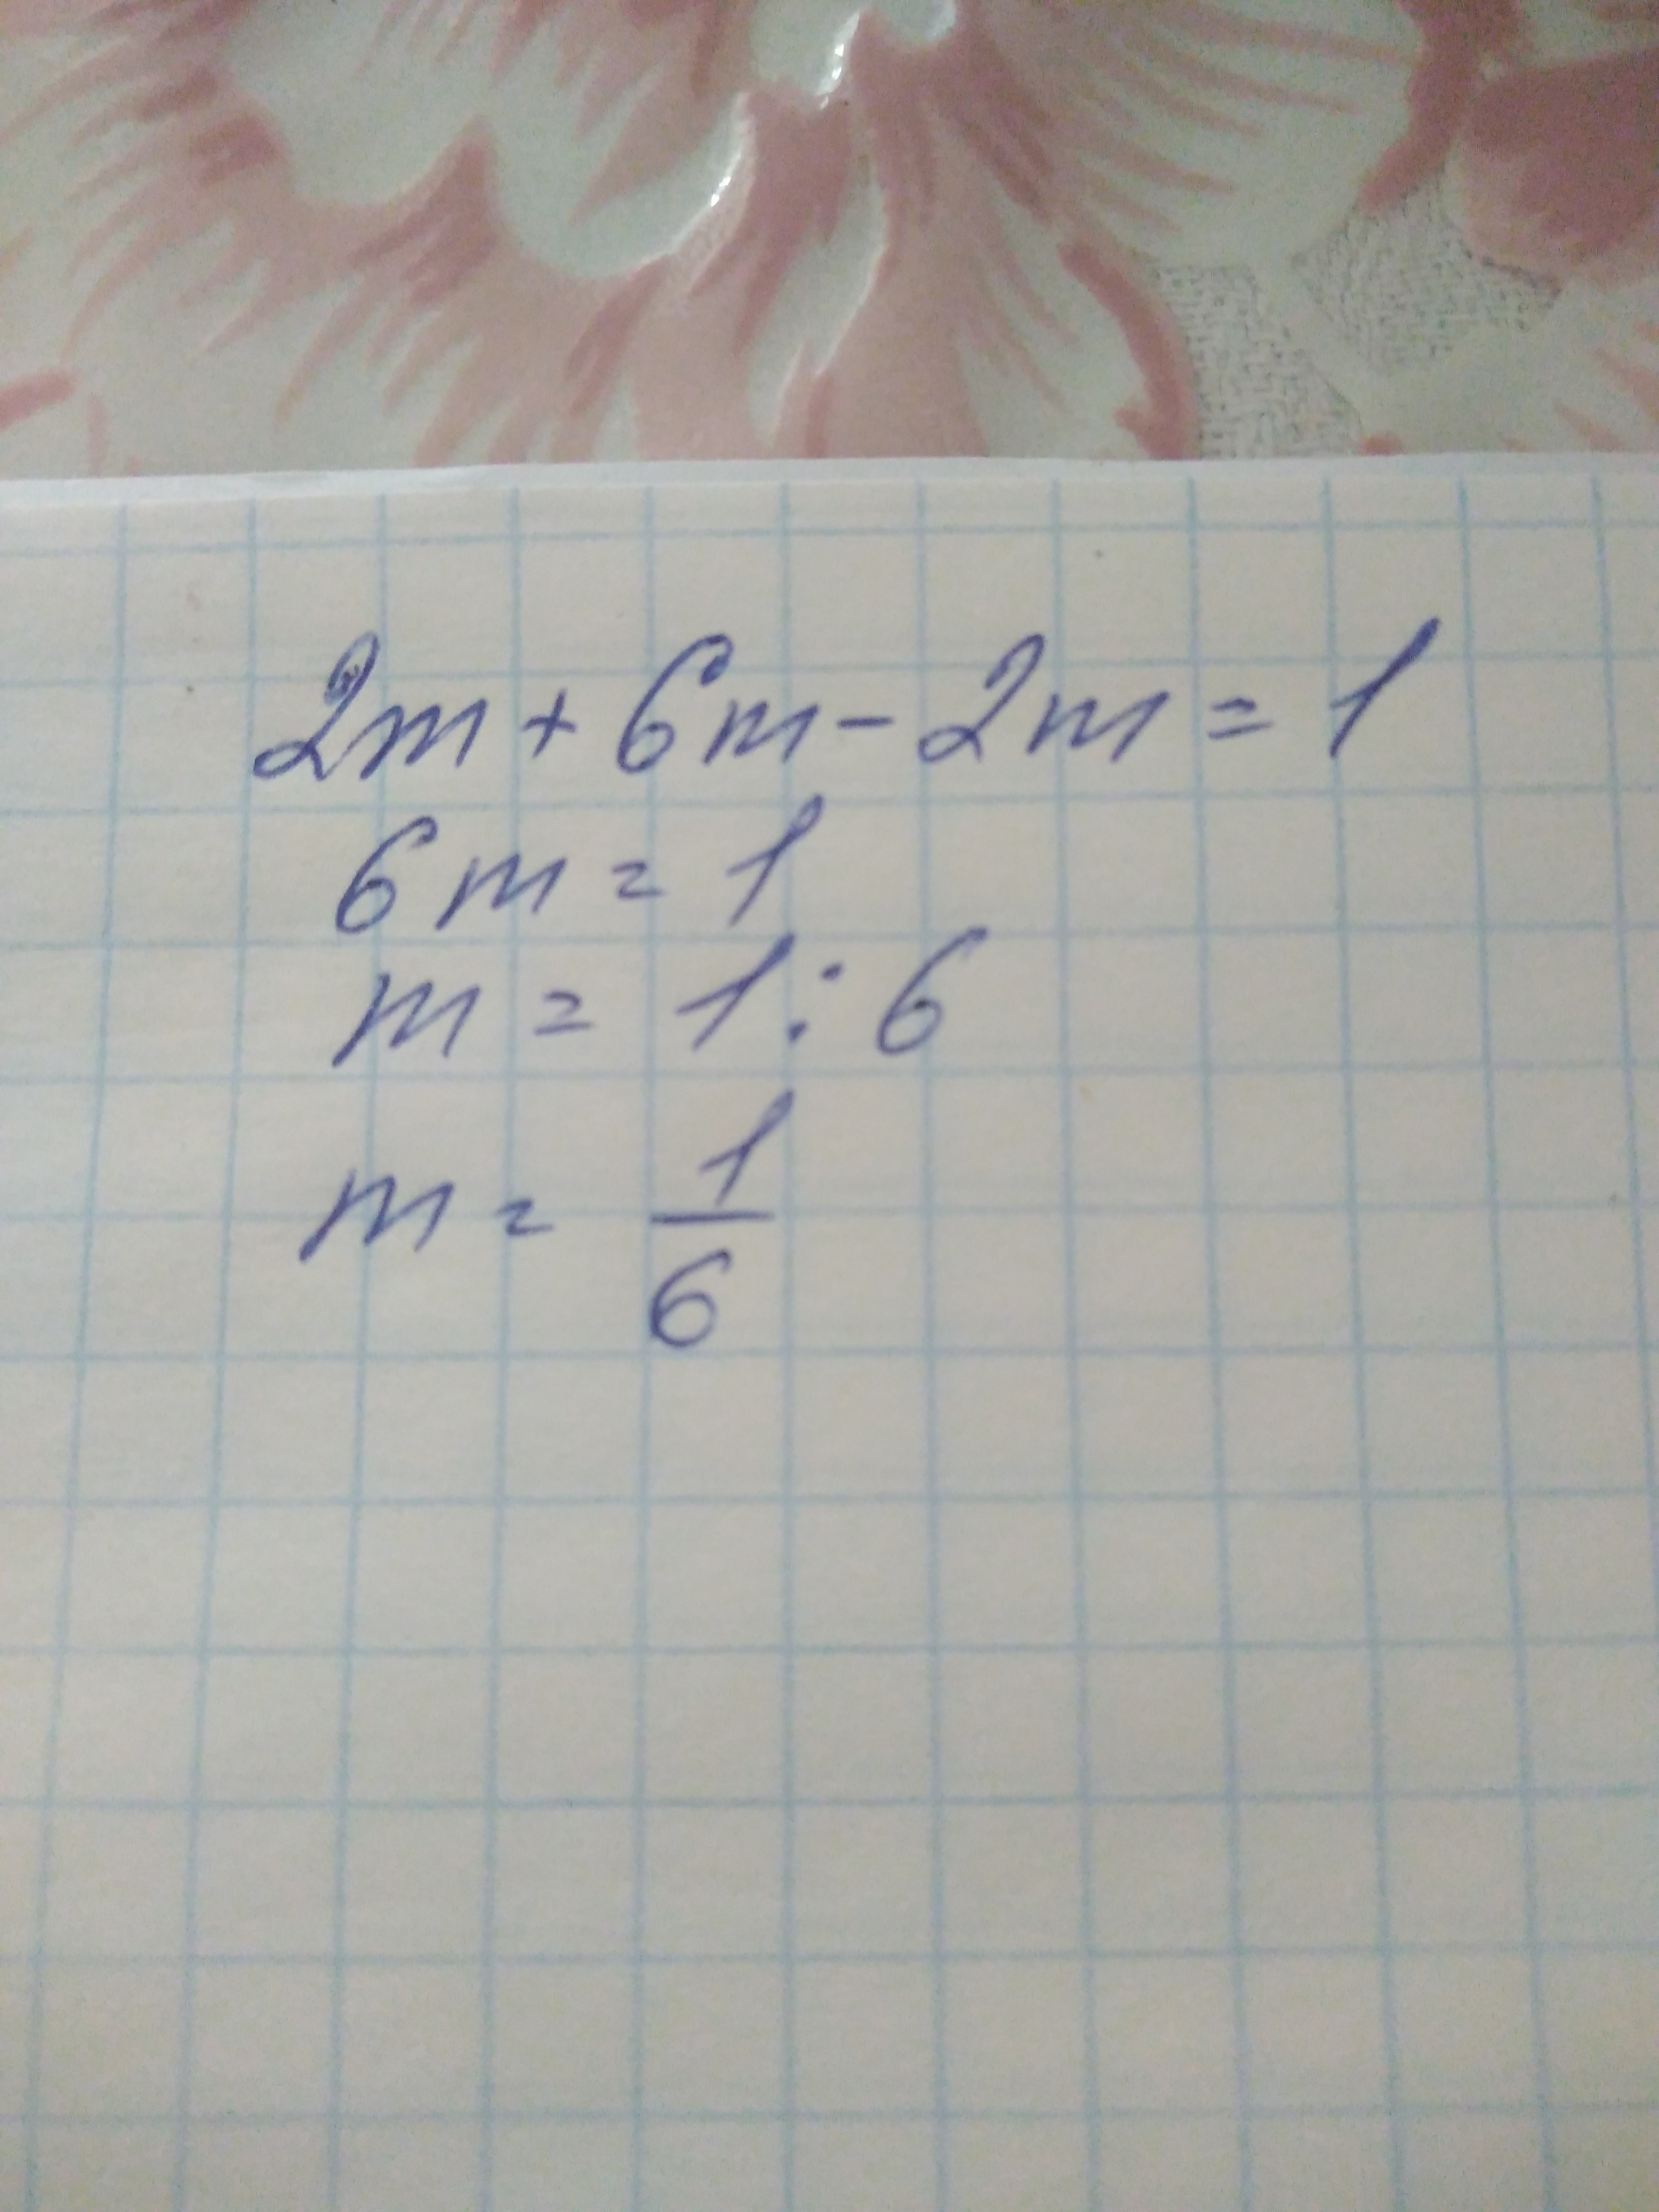 2m + 6m - 2m = 1
6m = 1
m = 1 : 6
m = 1/6